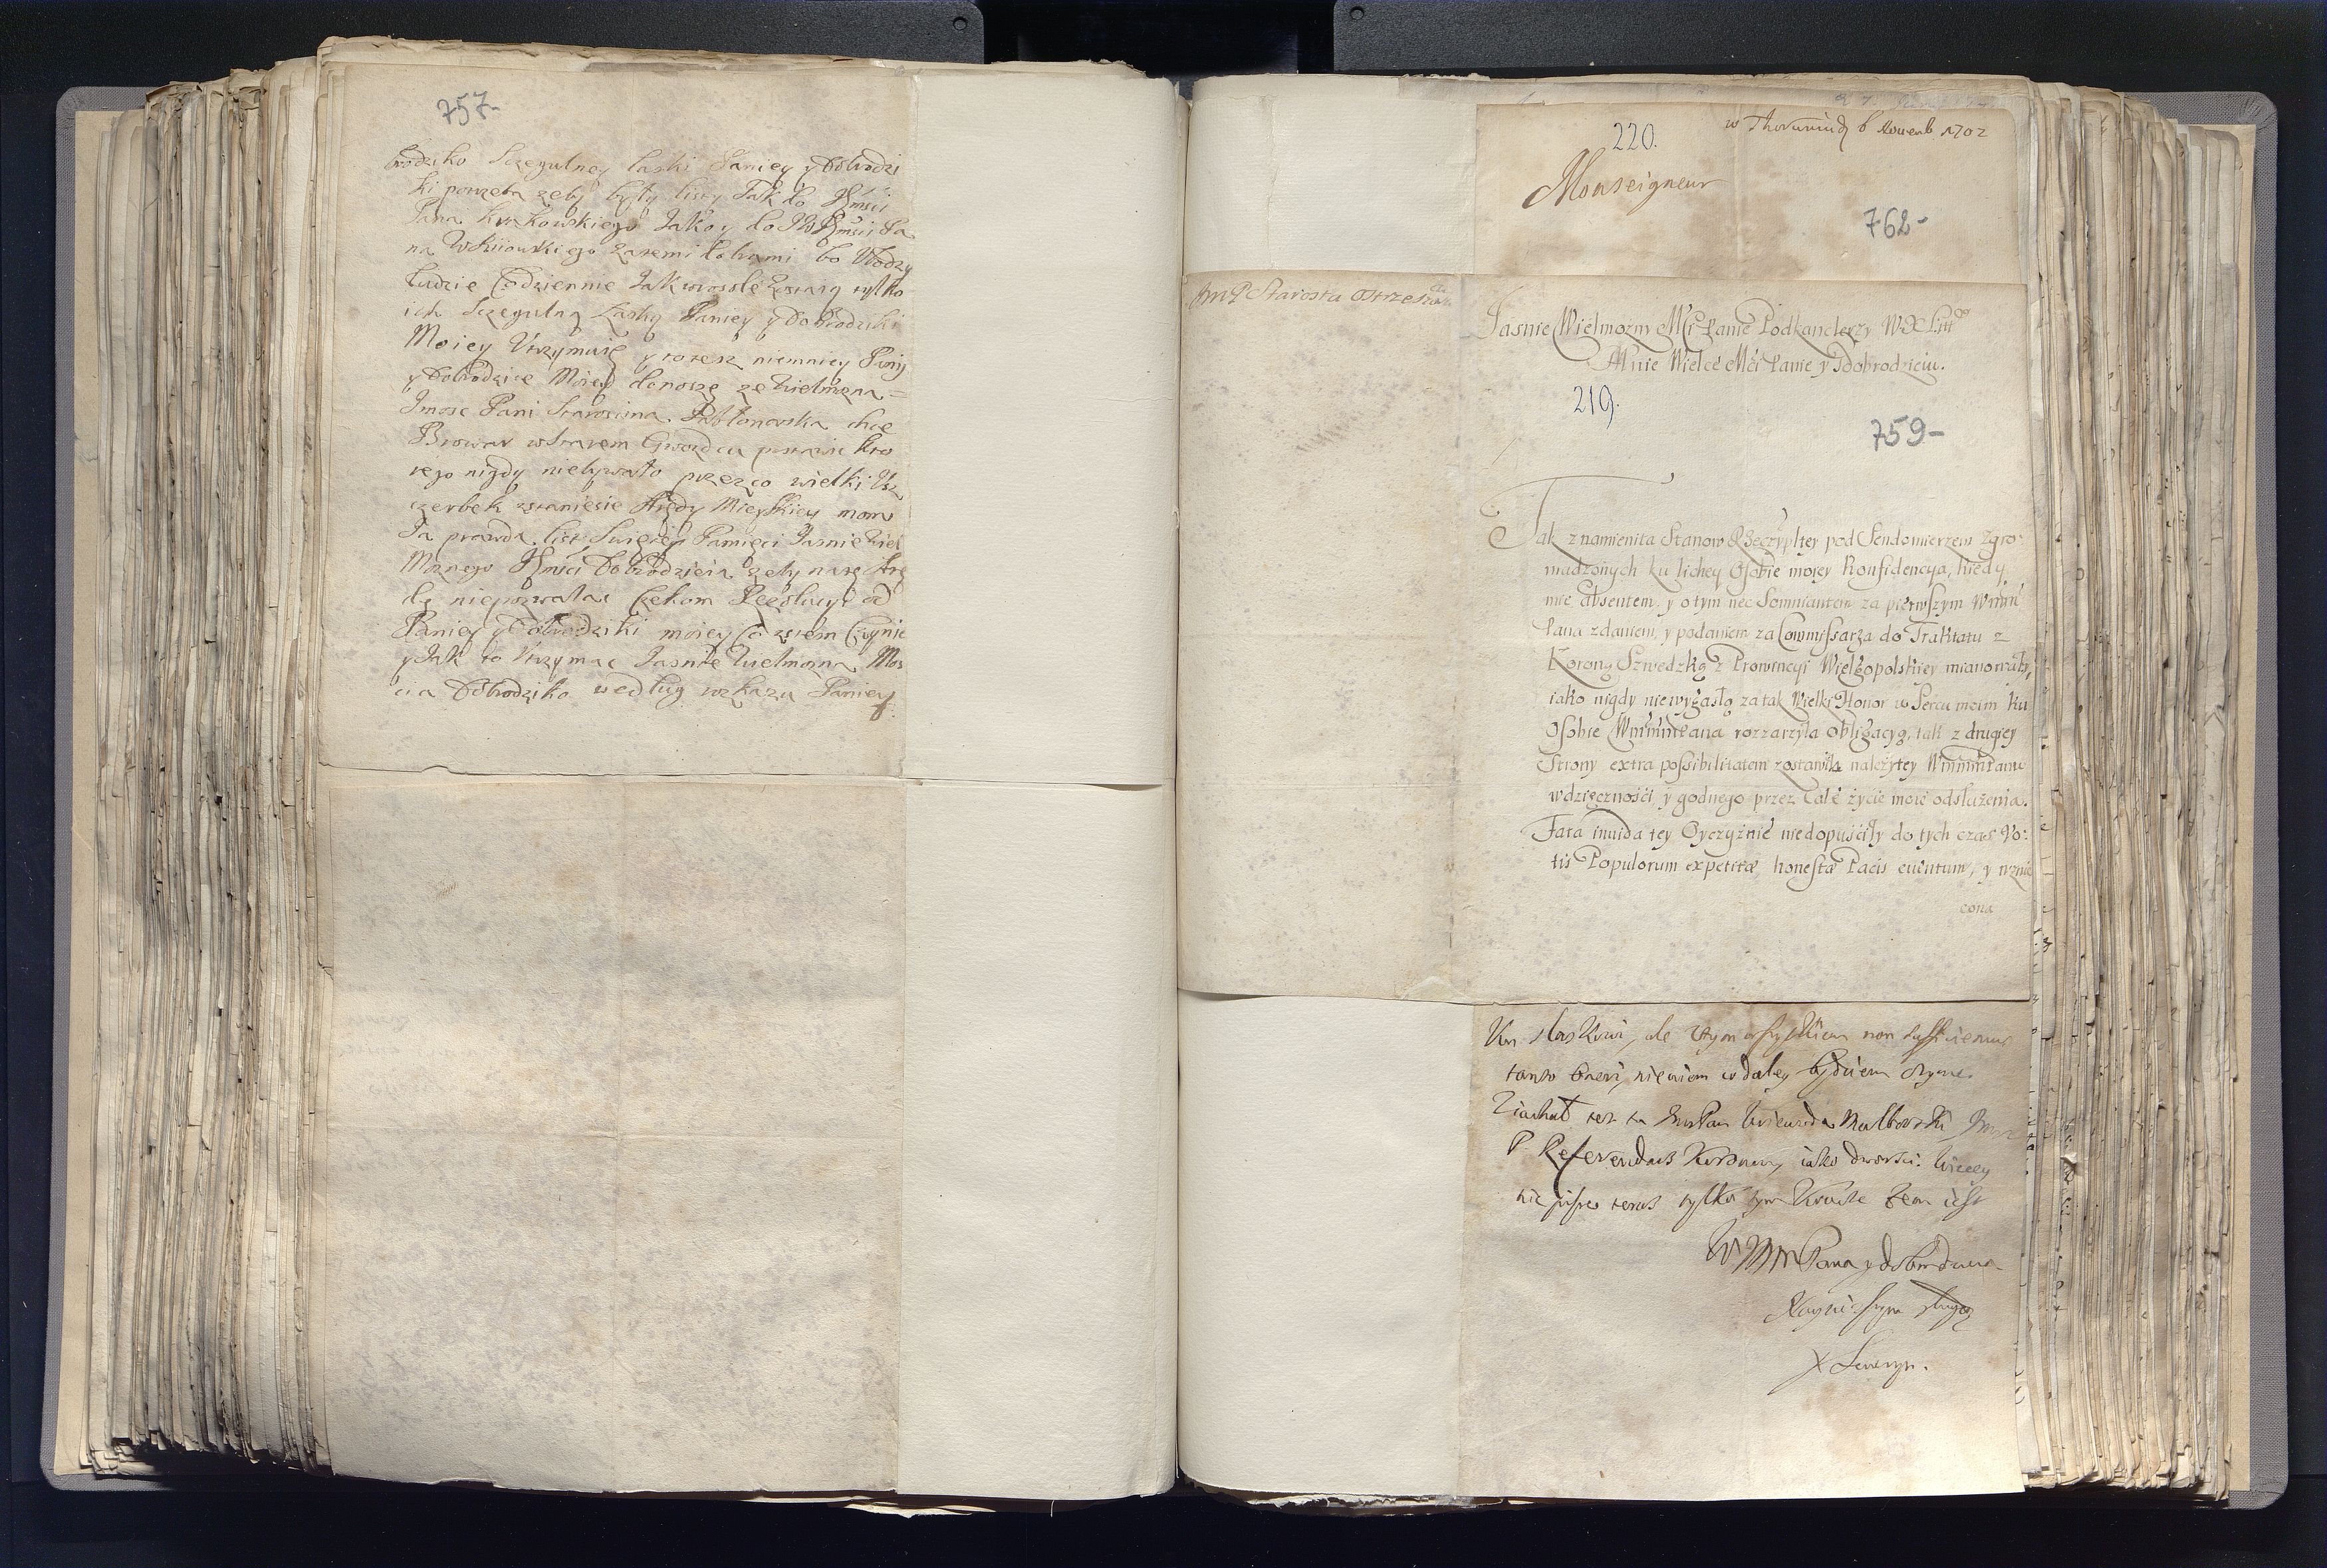 757-
brodziko Szczegulney łaski Paniey y Dobrodzi
ki potrzeba zeby były listy Tak do JEmści
Pana Krakowskiego Jako y do JW JEmści Pa
na Wskiiowskiego zaremi dobrami bo Vbodzy
ludzie Codziennie Jak zostaią tylko
ich Szczegulną Łaską Paniey y Dobrodziki
Moiey Vtrzymuię y totesz niemniey Paniy
y Dobrodzice Moiey donoszę ze Wielmozna =
Jmosc Pani Starościna Jabłonowska chce
Browar wstarem Gwozdcu postawic kto
rego nigdy niebywało przezco wielki Vsz
czerbek zstaniesie Arędy Mieyskiey mom
Ja prawda list Swiętey Pamięci Jasnie Wiel
Moznego JEmści Dobrodzieia zeby naszę Arę
dę niepozwalac Czekom Rezolucyi od
Paniey y Dobrodziki moiey Co zstem Czynic
y Jak to Vtrzymac Jasnie Wielmozna Mos
cia Dobrodziko według wzkazu Paniey
y
w Thoruniu d 6 Nouemb 1702
220.
Monseigneur
762-
JmP Starosta Ostrzeszow
Jasnie Wielmozny Mći Panie Podkanclerzy WXLitt
Mnie Wielce Mći Panie y Dobrodzieiu.
219.
759-
Tak znamienita Stanow Rzeczypltey pod Sendomierzem zgro:
madzonych ku lichey Osobie moiey Konfidencya, kiedy
mie absentem, y o tym nec Somniantem za pierwszym Wmm
Pana zdaniem, y podaniem za Commissarza do Traktatu z
Koroną Szwedzką z Prowincyi Wielgopolskiey mianowały,
iako nigdy niewygasłą za tak Wielki Honor w Sercu moim ku
Osobie Wmmm Pana rozzarzyła obligacyą, tak z drugiey
Strony extra possibilitatem zostawiła należytey Wmmm Panu
wdzięcznośći, y godnego przez Całe życie moie odsłużenia.
Fata inuida tey Oyczyźnie niedopuśćiły do tych czas Vo:
tis Populorum expetitæ honestæ Pacis euentum, y wznie
cona
ale tym wszytkiem non
tanto oneri, niewiem co daley będziem
Ziachał tesz tu ImPan Woiewoda Malborski Jm
P Referendarz Koronny, iako Wiecey
nie pisze teraz tylko tym Konczę zem iest
WMM Pana y dobrodzieia
Nayniszym sługą
X Seweryn.